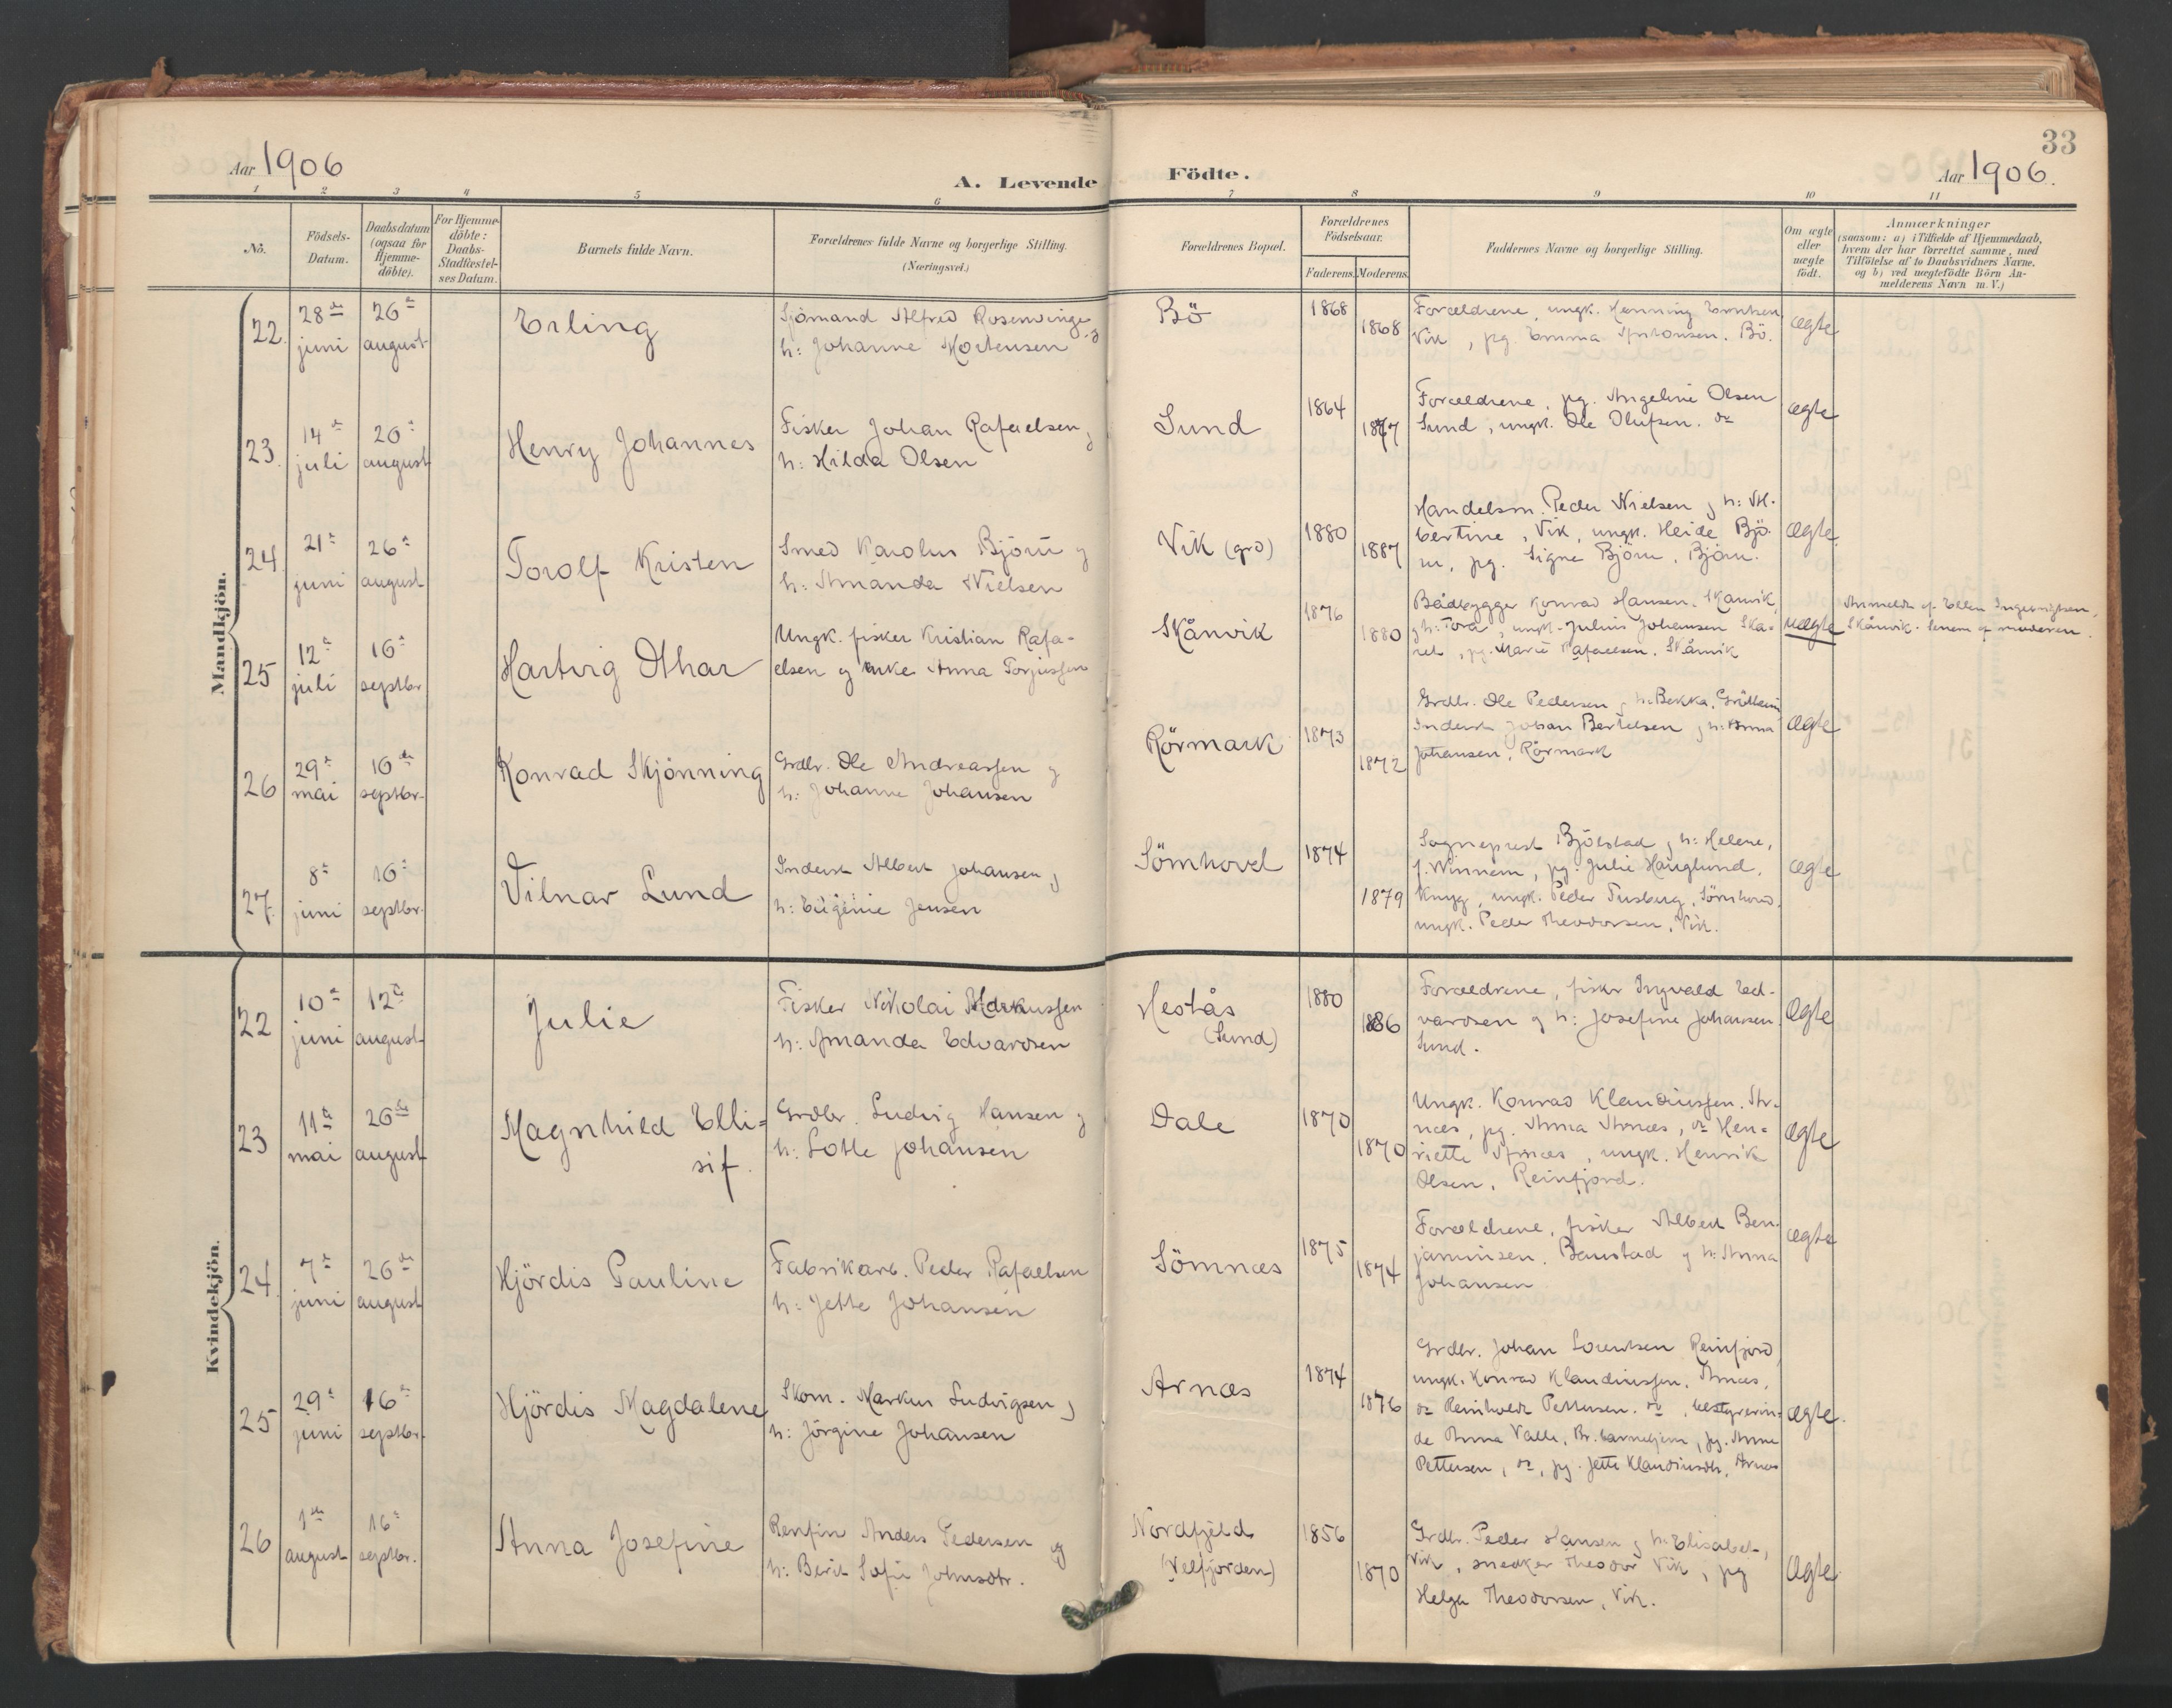 33
Aar 1906
A. Levende Födte.
Aar 1906.
1 2 3 4 5 6 7 8 9 10 11
No.
Födsels-
Datum.
Daabsdatum
(ogsaa for
Hjemme-
döbte).
For Hjemme-
döbte:
Daabs-
Stadfæstel-
ses Datum.
Barnets fulde Navn.
Forældrenes fulde Navne og borgerlige Stilling.
(Næringsvei.)
Forældrenes Bopæl.
Forældrenes
Födselsaar.
Faderens. Moderens.
Faddernes Navne og borgerlige Stilling.
Om ægte
eller
uægte
födt.
Anmærkninger
(saasom: a) i Tilfælde af Hjemmedaab,
hvem der har forrettet samme, med
Tilföielse af to Daabsvidners Navne.
og b) ved uægtefödte Börn An-
melderens Navn m. V.)
Mandkjön.
22.
28de
juni
26de
august
Erling
Sjömand Alfred Rosenvinge og
h: Johanne Mortensen
Bö
1868
1868
Forældrene, ungk. Henning
Vik, pg. Emma Antonsen. Bö.
ægte
23.
14de
juli
26de
august
Henry Johannes
Fisker Johan Rafaelsen, og
h: Hilda Olsen
Sund
1864
1877
Forældrene, pg. Angeline Olsen
Sund, ungk. Ole Olufsen. do
ægte
24.
21de
juni
26de
august
Torolf Kristen
Smed Karolus Björn og
h: Amanda Nielsen
Vik (grd)
1880
1887
Handelsm. Peder Nielsen og h: Al-
bertine, Vik, ungk. Heide Bjö-
rn, pg. Signe Björn, Björn.
ægte
25
12te
juli
16de
septbr
Hartvig Othar
Ungk. fisker Kristian Rafa-
elsen og enke Anna Torjussen
Skånvik
1876
1880
Bådbygger Konrad Hansen, Skånvik,
og h: Tora, ungk. Julius Johansen Ska-
ret, pg. Marie Rafaelsen, Skånvik
uægte
Anmeldt af Ellen Ingebrigtsen,
Skånvik. Senere af moderen.
26
29de
mai
16de
septbr.
Konrad Skjönning
Grdbr. Ole Andreassen og
h: Johanne Johansen
Rörmark
1873
1872
Grdbr. Ole Pedersen og h: Bekka,
Inderst Johan Bertelsen og h: Anna
Johansen, Rörmark
ægte
27.
8de
juni
16de
septbr.
Vilnar Lund
Inderst Albert Johansen og
h: Eugenie Jensen
Sömhovd
1874
1879
Sogneprest Bjölstad og h: Helene,
f. Winnem, pg. Julie Hauglund,
ungk. Peder Sörnhovd,
ungk. Peder Theodorsen, Vik.
ægte
Kvindekjön.
22
10de
juni
12te
august
Julie
Fisker Nikolai Markussen
h: Amanda Edvardsen
Hestås
(Sund)
1880
1886
Forældrene, fisker Ingvald Ed-
vardsen og h: Josefine Johansen.
Sund.
Ægte
23
11te
mai
26de
august
Magnhild Elli=
sif.
Grdbr. Ludvig Hansen og
h: Lotte Johansen
Dale
1870
1870
Ungk. Konrad Klaudiussen. Ar-
næs, pg. Anna Arnæs, do Hen-
riette Arnæs, ungk. Henrik
Olsen, Reinfjord.
ægte
24.
7de
juni
26de
august
Hjördis Pauline
Fabrikarb. Peder Rafaelsen
h: Jette Johansen
Sömnæs
1875
1874
Forældrene, fisker Albert Ben-
jaminsen, Baustad og h: Anna
Johansen
ægte
25
29de
juni
16de
septbr.
Hjördis Magdalene
Skom. Markus Ludvigsen og
h: Jörgine Johansen
Arnæs
1874
1876
Grdbr. Johan Lorentsen Reinfjord,
ungk. Konrad Klaudiussen, Arnæs,
do Reinholdt Pettersen. do, bestyrerin-
de Anna Valle, Br. barnehjem, pg. Anna
Pettersen, do, pg. Jette Klaudiusdtr, Arnæs
ægte.
26
1ste
august
16de
septbr.
Anna Josefine
Renfin Anders Pedersen og
h: Berit Sofie Johnsdtr.
Nordfjeld
(Velfjorden)
1856
1870
Grdbr. Peder Hansen og h: Elisabet,
Vik, snedker Theodor Vik, pg
Helga Theodorsen, Vik.
Ægte